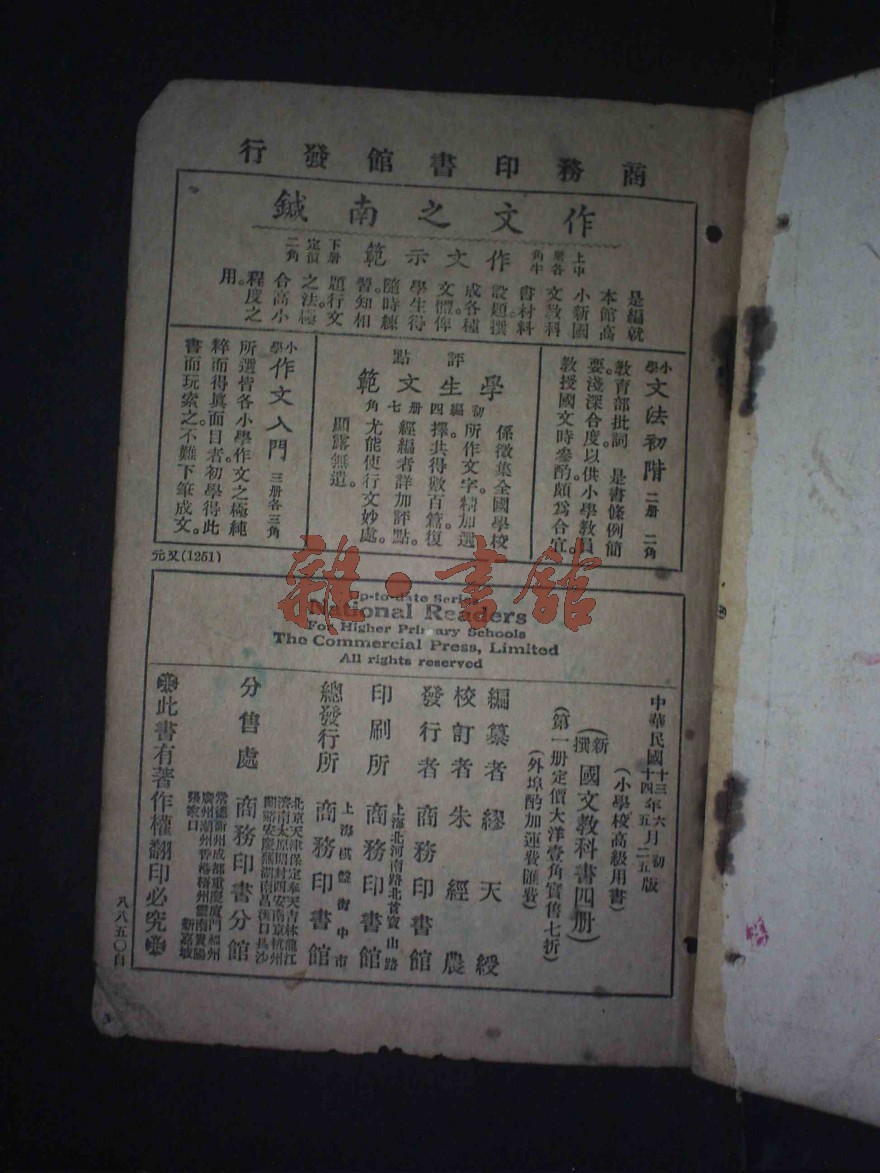 商務印書館發行
作文之南鍼
作文示範
上中
册各
角半
下册
定價
二角
是編就
本館高
小新國
文教科
書材料
設題撰
成各種
文體。俾
學生得
隨時練
習。知相
題行文
之法。極
合高小
程度之
用。
小學 文法初階 二册 二角
教育部批詞 是書條例簡
要。淺深合度。以供小學教員
教授國文時參酌。頗爲合宜。
評點
學生文範
初編四册七角
係徵集全國學校
所作文字。精加選
擇。共得數百篇。復
經編者詳加評點。
尤能使行文妙處。
顯露無遺。
小學 作文入門 三册各三角
所選皆各小學作文之極純
粹而得眞面目者。初學得此
書而玩索之。不難下筆成文。
元又(1251)
雜·書館
Up-to-date Series
National Readers
For Higher Primary Schools
The Commercial Press, Limited
All rights reserved
中華民國十三年六月初版
十四年五月二五版
(小學校高級用書)
(新撰國文教科書四册)
(第一册定價大洋壹角實售七折)
(外埠酌加運費匯費)
編纂者 繆天綬
校訂者 朱經農
發行者 商務印書館
上海北河南路北首寶山路
印刷所 商務印書館
上海棋盤街中市
總發行所 商務印書館
分售處 商務印書分館
北京天津保定奉天吉林龍江
濟南太原開封西安南京杭州
蘭谿安慶蕪湖南昌漢口長沙
常德衡州成都重慶廈門福州
廣州潮州香港梧州雲南貴陽
張家口 新嘉坡
此書有著作權翻印必究
八八五〇自